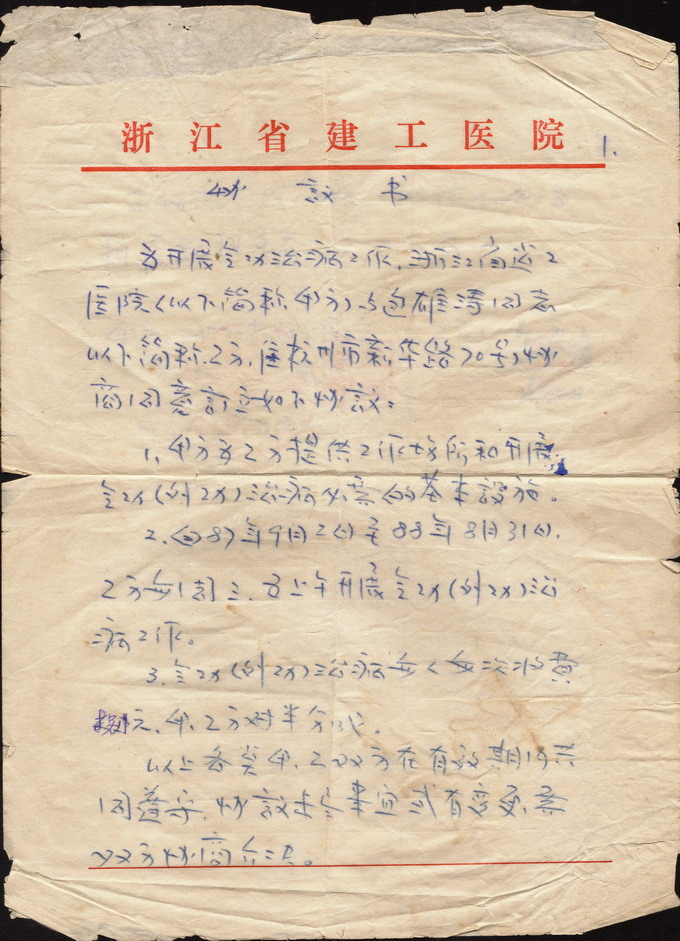 浙江省建工医院
1.
协议书
为开展气功治病工作，浙江省建工
医院（以下简称甲方）与包雄涛同志
以下简称乙方，住杭州市新华路70号）协
商同意订立如下协议：
1、甲方为乙方提供工作场所和开展
气功（外功）治病必需的基本设施。
2、自87年9月2日至88年8月31日，
乙方每周三、五上午开展气功（外功）治
病工作。
3、气功（外功）治病每人每次收费
元，甲、乙方对半分成。
以上各类甲、乙双方在有效期内共
同遵守，协议未尽事宜或有变更，需
双方协商解决。